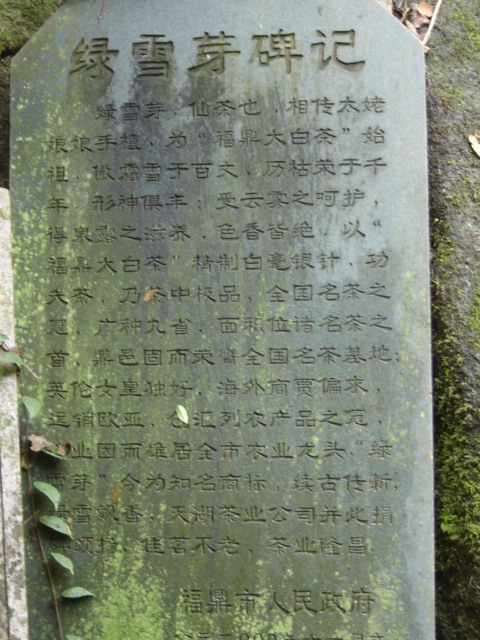 绿雪芽碑记
绿雪芽，仙茶也，相传太姥
娘娘手植，为“福鼎大白茶”始
祖，傲霜雪于百丈，历枯荣于千
年，形神俱丰；受云雾之呵护，
得泉露之滋养，色香皆绝，以“
福鼎大白茶”精制白毫银针，功
夫茶，乃茶中极品，全国名茶之
冠，广种九省，面积位诸名茶之
首，鼎邑固而荣膺全国名茶基地；
英伦女皇独好，海外商贾偏来，
远销欧亚，创汇列农产品之冠，
业因而雄居全市农业龙头。“绿
雪芽”今为知名商标，续古传新；
绿雪飘香，天湖茶业公司并此捐
颂扬，佳茗不老，茶业隆昌
福鼎市人民政府